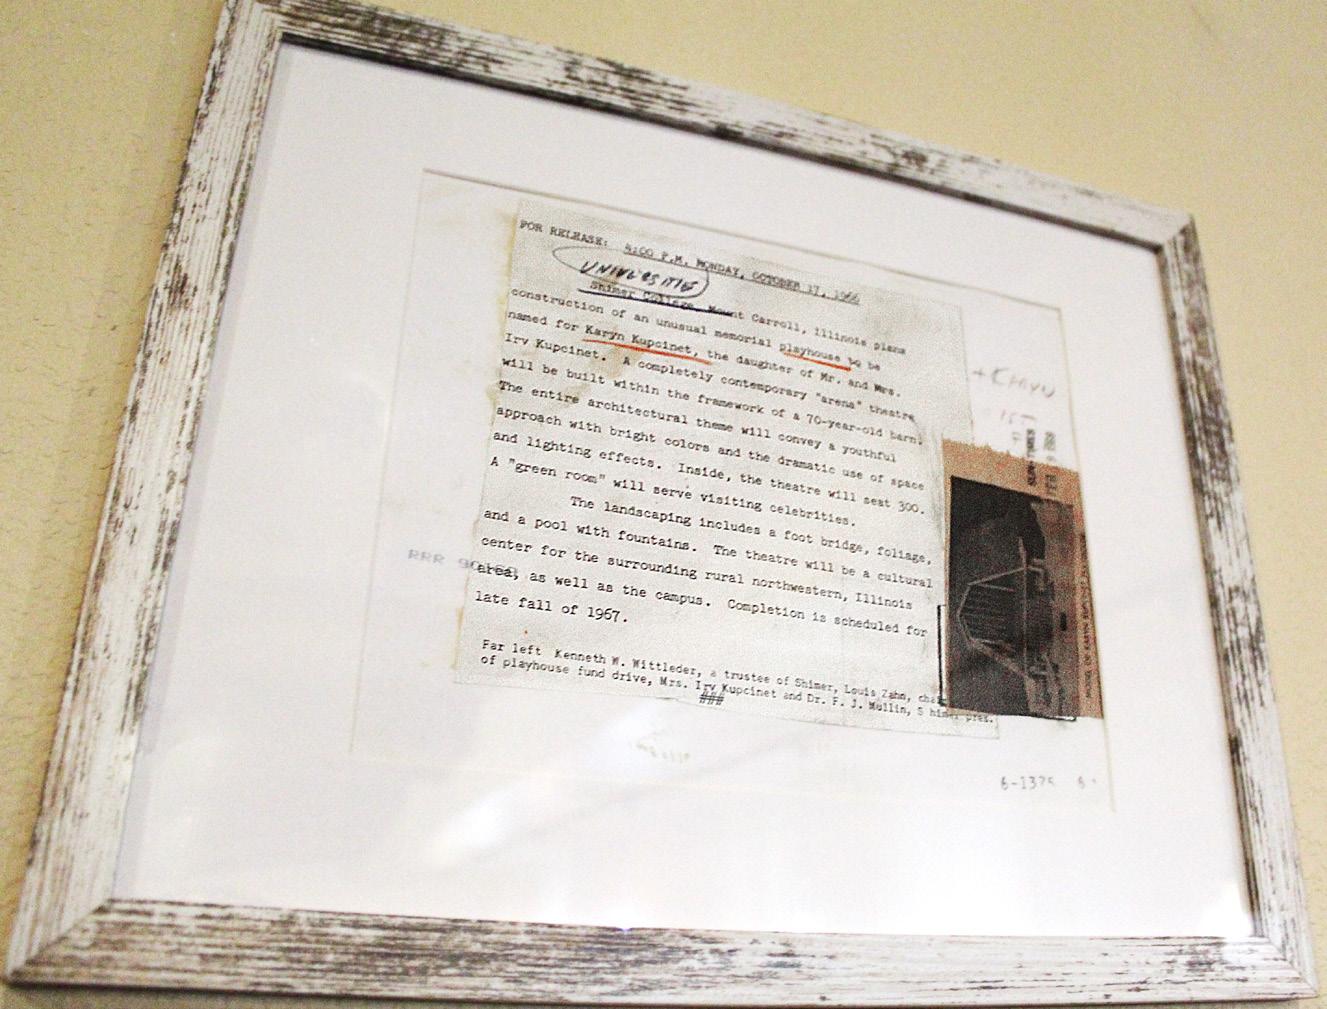 FOR RELEASE: 4:00 P.M. MONDAY, OCTOBER 17, 1966
UNIVERSITIES
Shimer College, Mount Carroll, Illinois plans
construction of an unusual memorial playhouse to be
named for Karyn Kupcinet, the daughter of Mr. and Mrs.
Irv Kupcinet. A completely contemporary "arena" theatre
will be built within the framework of a 70-year-old barn.
The entire architectural theme will convey a youthful
approach with bright colors and the dramatic use of space
and lighting effects. Inside, the theatre will seat 300.
A "green room" will serve visiting celebrities.
The landscaping includes a foot bridge, foliage,
and a pool with fountains. The theatre will be a cultural
center for the surrounding rural northwestern, Illinois
area, as well as the campus. Completion is scheduled for
late fall of 1967.
Far left Kenneth W. Wittleder, a trustee of Shimer, Louis Zahn,
of playhouse fund drive, Mrs. Irv Kupcinet and Dr. F. J. Mullin, S himer pres.
###
RRR
SUN-TIMES
MODEL OF KARYN KUPCINET
6-1375